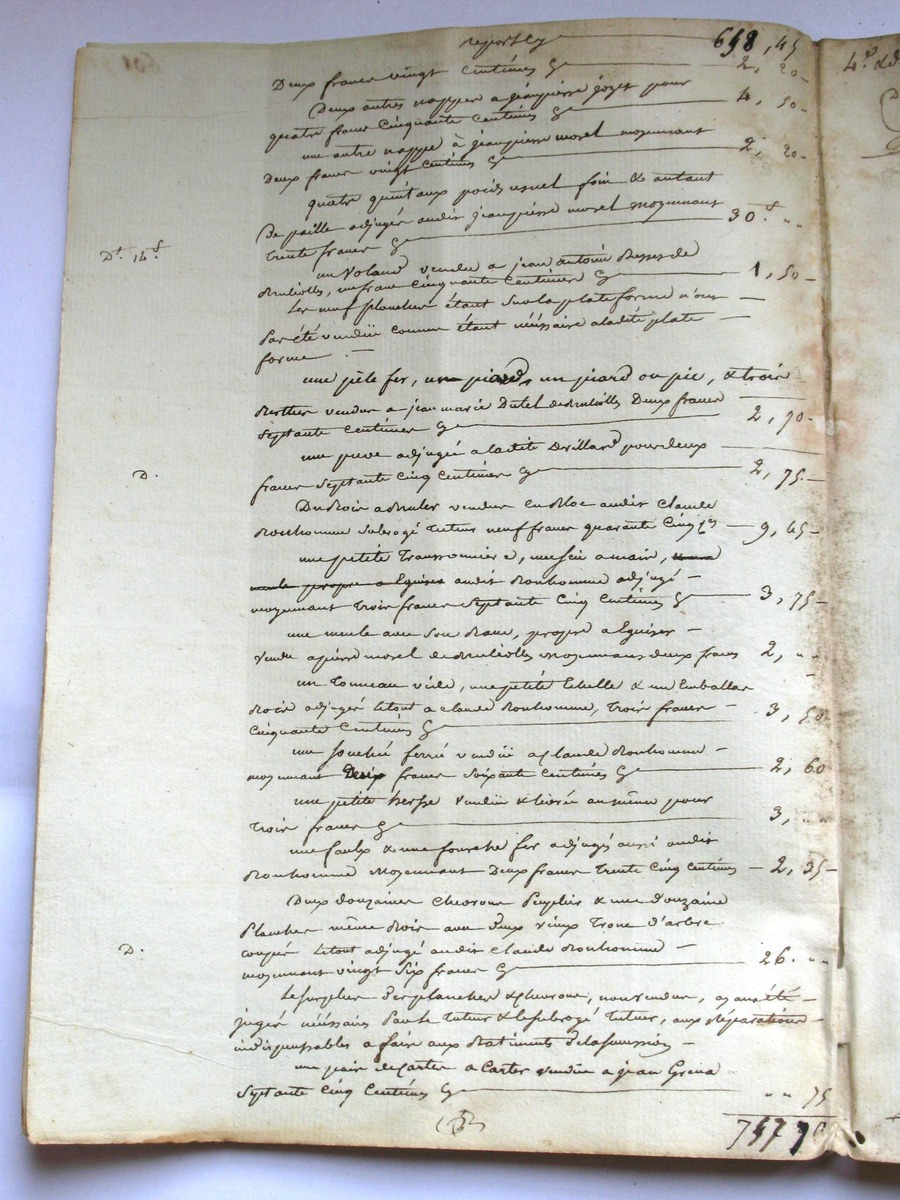 reporté 698, 45
Deux francs vingt centimes 2, 20
Deux autres nappes a jeanpierre pour
quatre francs cinquante centimes 4, 50
une autre nappe à jeanpierre morel moyennant
Deux francs vingt centimes 2, 20
quatre quintaux poids usuel foin & autant
De paille adjugés audit jeanpierre morel moyennant
trente francs 30.f „
un Voland vendu a jean Antoine de
un franc cinquante centimes 1, 50
Les neuf planches étant sur la plate forme n'ont
par été vendües comme étant nécéssaires a ladite plate
forme
une pèle fer, un piard ou pic, & trois
vendus a jean marie Dutel Deux francs
septante centimes 2, 70
une adjugée a ladite pour deux
D.
francs septante cinq centimes 2, 75
Du bois a bruler vendu en bloc audit claude
Bonhomme subrogé tuteur neuf francs quarante cinq 9, 45
une petite une scie a main,
propre a Eguiser audit Bonhomme adjugé
moyennant trois francs septante cinq centimes 3, 75
une meule avec son propre a Eguiser
vendu a pierre morel moyennant deux francs 2, „
un tonneau vide, une petite Echelle & un
Bois adjugés letout a claude Bonhomme, trois francs
cinquante centimes 3, 50
une ferrée vendüe a claude Bonhomme
moyennant Deux francs soixante centimes 2, 60
une petite herse vendüe & livrée au même pour
trois francs 3,
une faulx & une fourche fer adjugés aussi audit
Bonhomme moyennant Deux francs trente cinq centimes 2, 35
Deux douzaines chevrons & une Douzaine
planches même Bois avec deux vieux troncs d'arbre
D.
coupés letout adjugé audit claude Bonhomme
moyennant vingt six francs 26. „
Le surplus des planches & chevrons, non vendus, ayant été
jugés nécéssaires par le tuteur & le subrogé tuteur, aux réparations
indispensables a faire aux Batiments de la succession
une paire de cartes a carter vendüe a jean
septante cinq centimes „ „ 75
757 70